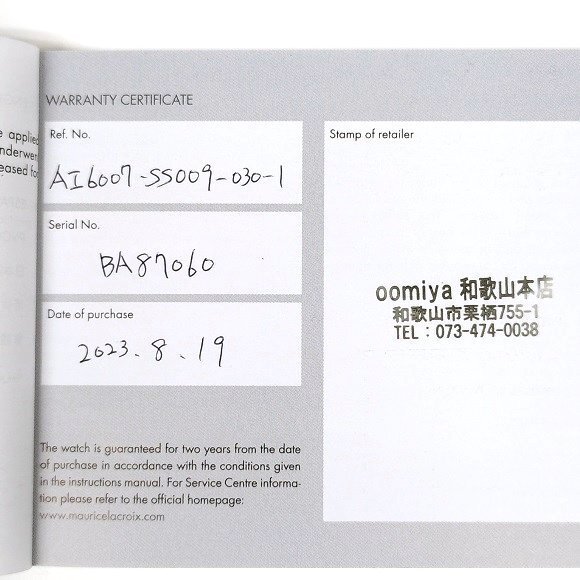 e applied
nderwen
eased for
WARRANTY CERTIFICATE
Ref. No.
AI6007-SS009-030-1
Serial No.
BA87060
Date of purchase
2023.8.19
The watch is guaranteed for two years from the date
of purchase in accordance with the conditions given
in the instructions manual. For Service Centre informa-
tion please refer to the official homepage:
www.mauricelacroix.com
Stamp of retailer
oomiya 和歌山本店
和歌山市栗栖755-1
TEL：073-474-0038